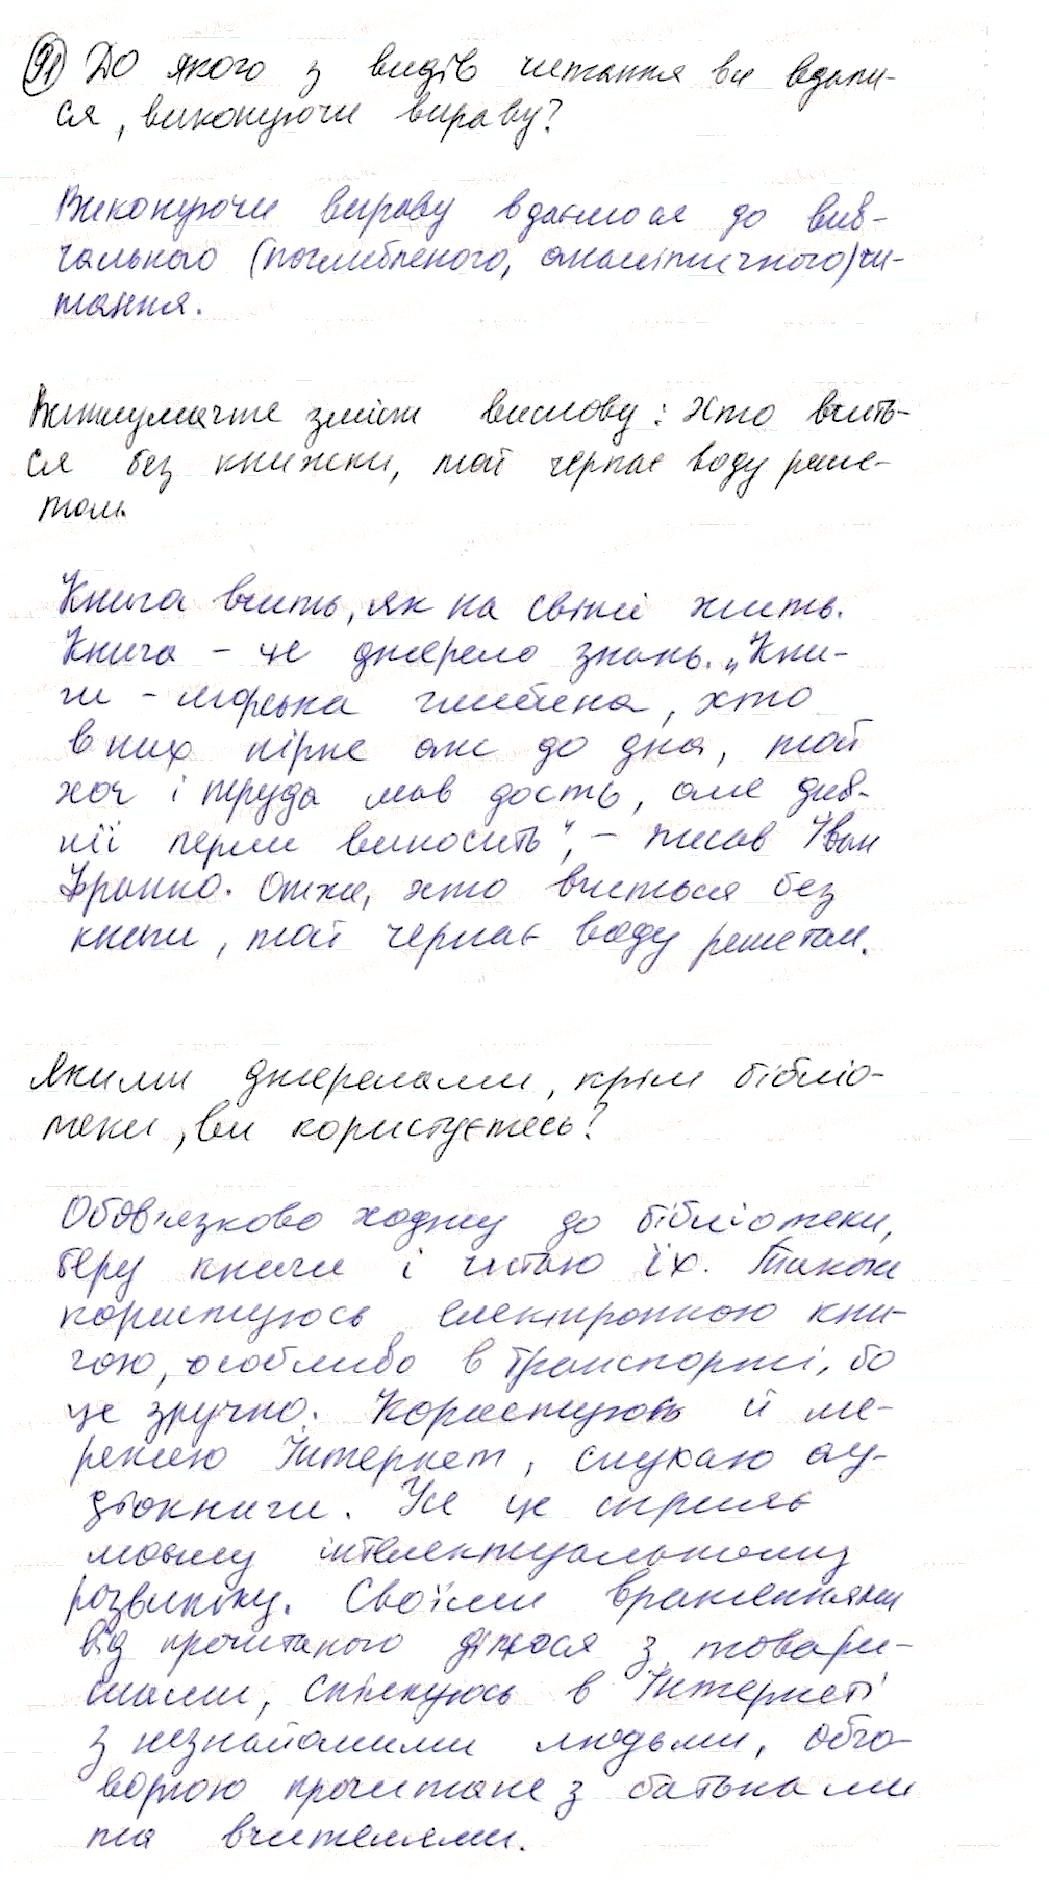 91 До якого з видів читання ви вдали-
ся, виконуючи вправу?
Виконуючи вправу вдаємося до вив-
чального (поглибленого, аналітичного) чи-
тання.
Витлумачте зміст вислову: Хто вчить-
ся без книжки, той черпає воду реше-
том.
Книга вчить, як на світі жить.
Книга - це джерело знань. „Кни-
ги - морська глибина, хто
в них пірне аж до дна, той
хоч і труда мав досить, але див-
нії перли виносить", - писав Іван
Франко. Отже, хто вчиться без
книги, той черпає воду решетом.
Якими джерелами, крім бібліо-
теки, ви користуєтесь?
Обов'язково ходжу до бібліотеки,
беру книги і читаю їх. Також
користуюсь електронною кни-
гою, особливо в транспорті, бо
це зручно. Користуюсь й ме-
режею Інтернет, слухаю ау-
діокниги. Усе це сприяє
моєму інтелектуальному
розвитку. Своїми враженнями
від прочитаного ділюся з товари-
шами, спілкуюсь в Інтернеті
з незнайомими людьми, обго-
ворюю прочитане з батьками
та вчителями.